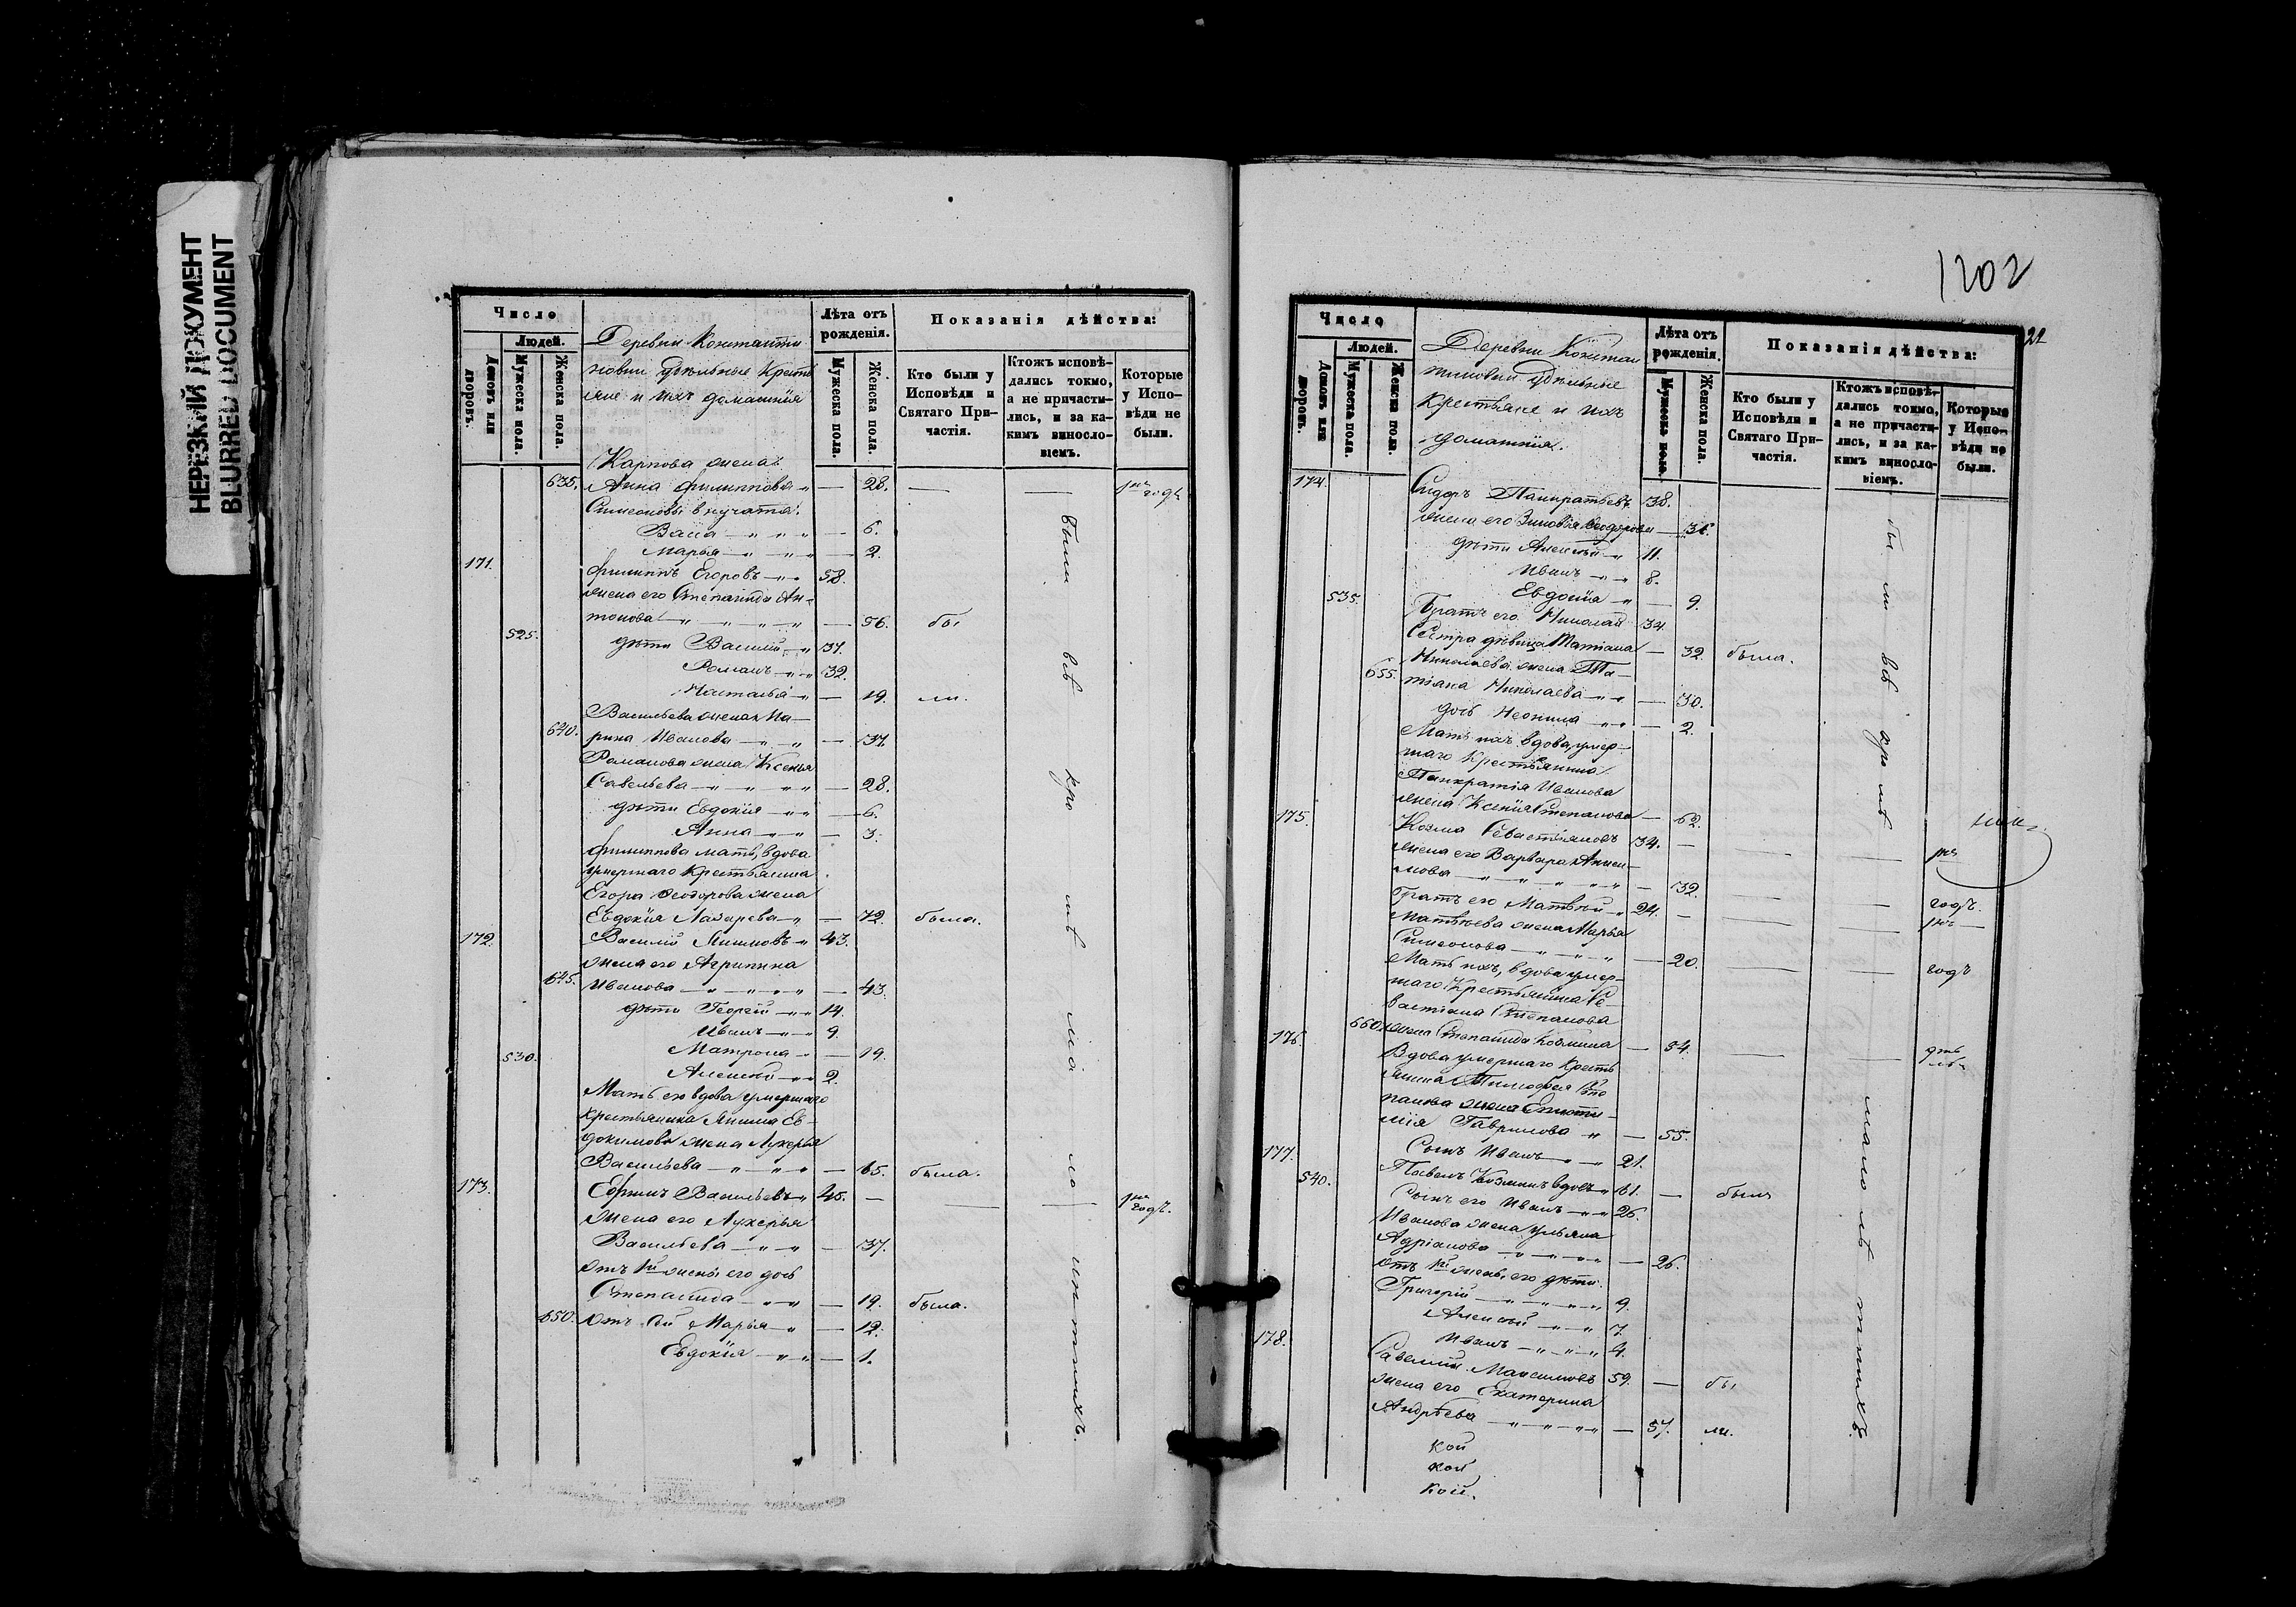 НЕРЕЗКИЙ ДОКУМЕНТ
BLURRED DOCUMENT
Число
Людей.
Домовъ или дворовъ.
Мужеска пола.
Женска пола.
Деревни Константи
новки Удѣльные Кресть
яне и ихъ домашнія
Лѣта отъ рожденія.
Мужеска пола.
Женска пола.
Показанія дѣйства:
Кто были у Исповѣди и Святаго Причастія.
Ктожъ исповѣдались токмо, а не причастились, и за какимъ винословіемъ.
Которые у Исповѣди не были.
Карпова жена
635. Анна Филиппова — 28. — — годъ
Симеоновы внучата
Васса — 6.
Марья — 2.
171. Филиппъ Егоровъ 58.
жена его Степанида Ан-
тонова — 56. бы
525. дѣти Василій 37.
Романъ 32.
Наталья — 19. ли.
Васильева жена Ма-
640. рина Иванова — 37.
Романова жена Ксенья
Савельева — 28.
дѣти Евдокія — 6.
Анна — 3.
Филиппова мать, вдова
умершаго Крестьянина
Егора Ѳеодорова жена
Евдокія Лазарева — 72. была.
172. Василій 43.
жена его Агрипина
645. Иванова — 43.
дѣти Георгій 14.
Иванъ 9.
Матрона — 19.
530. Алексѣй 2.
Мать его вдова умершаго
крестьянина Ев-
докимова жена Лукерья
Васильева — 65. была.
173. Ефимъ Васильевъ 45. — — — годъ.
жена его Лукерья
Васильева — 37.
отъ 1й жены его дочь
Степанида — 19. была.
650. отъ 2й Марья — 12.
Евдокія — 1.
были всѣ кро мѣ ма лолѣтнихъ.
1202
21
Число
Людей.
Домовъ или дворовъ.
Мужеска пола.
Женска пола.
Деревни Констан
тиновки Удѣльные
Крестьяне и ихъ
домашнія.
Лѣта отъ рожденія.
Мужеска пола.
Женска пола.
Показанія дѣйства:
Кто были у Исповѣди и Святаго Причастія.
Ктожъ исповѣдались токмо, а не причастились, и за какимъ винословіемъ.
Которые у Исповѣди не были.
174. Сидоръ Панкратьевъ 38.
жена его Зиновья Ѳеодорова — 36.
дѣти Алексѣй 11.
Иванъ 8.
Евдокія — 9.
535. Братъ его Николай 34.
Сестра дѣвица Татіана — 32. была.
Николаева жена Та-
655. тіана Николаева — 30.
дочь Неонила — 2.
Мать ихъ вдова, умер-
шаго Крестьянина
Панкратія Иванова
жена Ксенія Степанова — 62.
175. Козма Севастьяновъ 34. — — —
жена его Варвара Аники-
мова — 32. — — годъ.
Братъ его Матвѣй 24. — — —
Матвѣева жена Марья
Симеонова — 20. — — годъ
Мать ихъ, вдова умер-
шаго Крестьянина Се-
вастіана Степанова
660. жена Степанида Козмина — 54. — —
176. Вдова умершаго Кресть
янина Тимоѳея Сте
панова жена
Гаврилова — 55.
Сынъ Иванъ 21.
177. Павелъ Козминъ вдовъ 61. — былъ
540. Сынъ его Иванъ 26.
Иванова жена Ульяна
Адріанова — 26.
отъ 1й жены его дѣти.
Григорій 9.
Алексѣй 7.
Иванъ 4.
178. Савелій Максимовъ 59. — бы
жена его Екатерина
Андрѣева — 57. ли.
кой
кой
кой.
бы ли всѣ кро мѣ малолѣтнихъ.